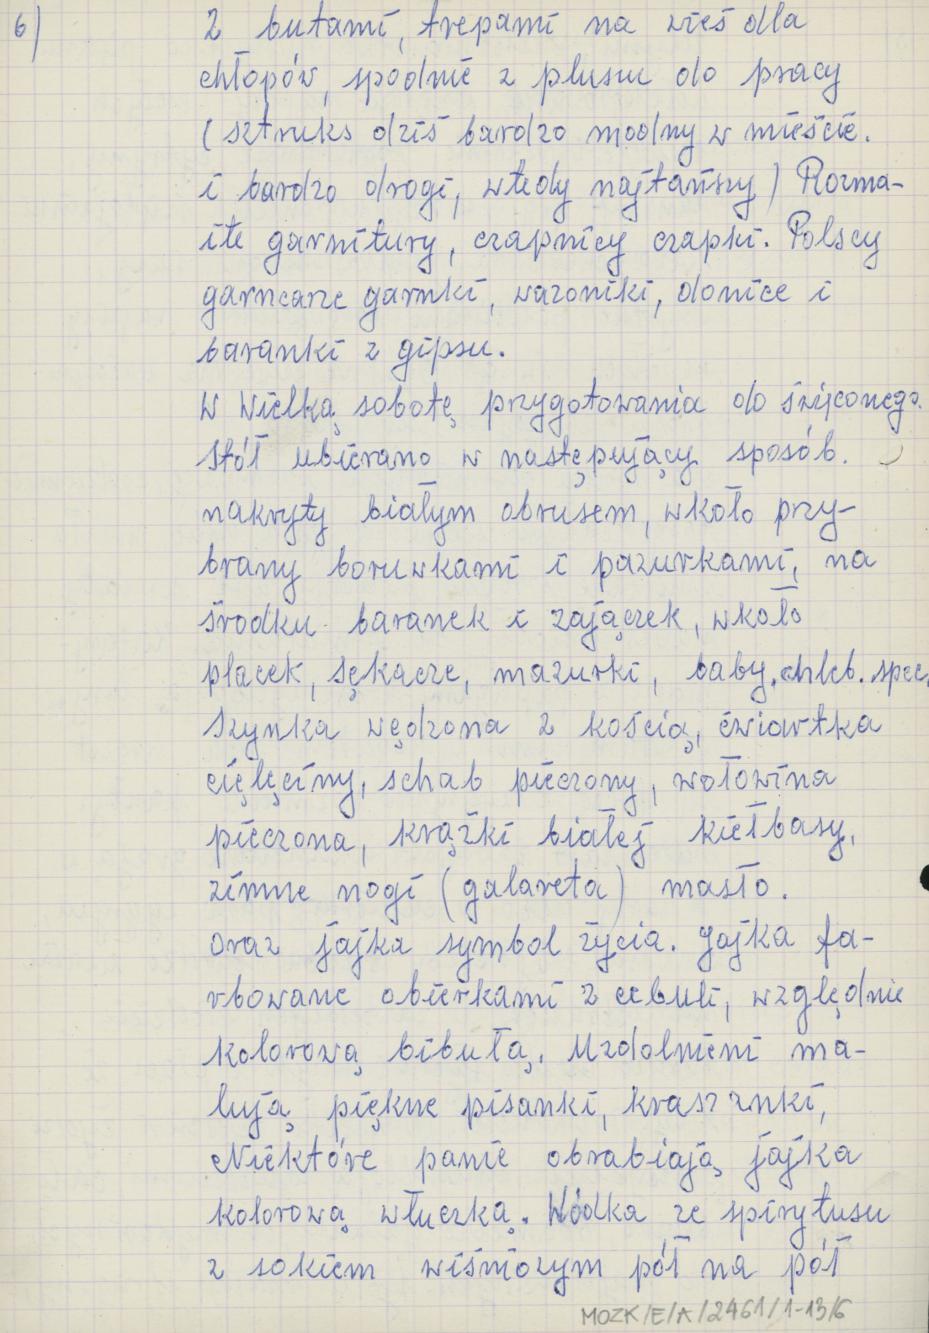 6)
z butami, trepami na wieś dla
chłopów, spodnie z pluszu do pracy
(sztruks dziś bardzo modny w mieście.
i bardzo drogi, wtedy najtańszy) Rozma-
ite garnitury, czapnicy czapki. Polscy
garncarze garnki, wazoniki, donice i
baranki z gipsu.
W Wielką sobotę przygotowania do święconego.
Stół ubierano w następujący sposób.
nakryty białym obrusem, wkoło przy-
brany boruwkami i pazurkami, na
środku baranek i zajączek, wkoło
placek, sękacze, mazurki, baby, chleb. spec.
Szynka wędzona z kością, ćwiartka
cielęciny, schab pieczony, wołowina
pieczona, krążki białej kiełbasy,
zimne nogi (galareta) masło.
oraz jajka symbol życia. Jajka fa-
rbowane obierkami z cebuli, względnie
kolorową bibułą. Uzdolnieni ma-
lują piękne pisanki, kraszanki,
Niektóre panie obrabiają jajka
kolorową włuczką. Wódka ze spirytusu
z sokiem wiśniowym pół na pół
MOZK/E/A/2461/1-13/6